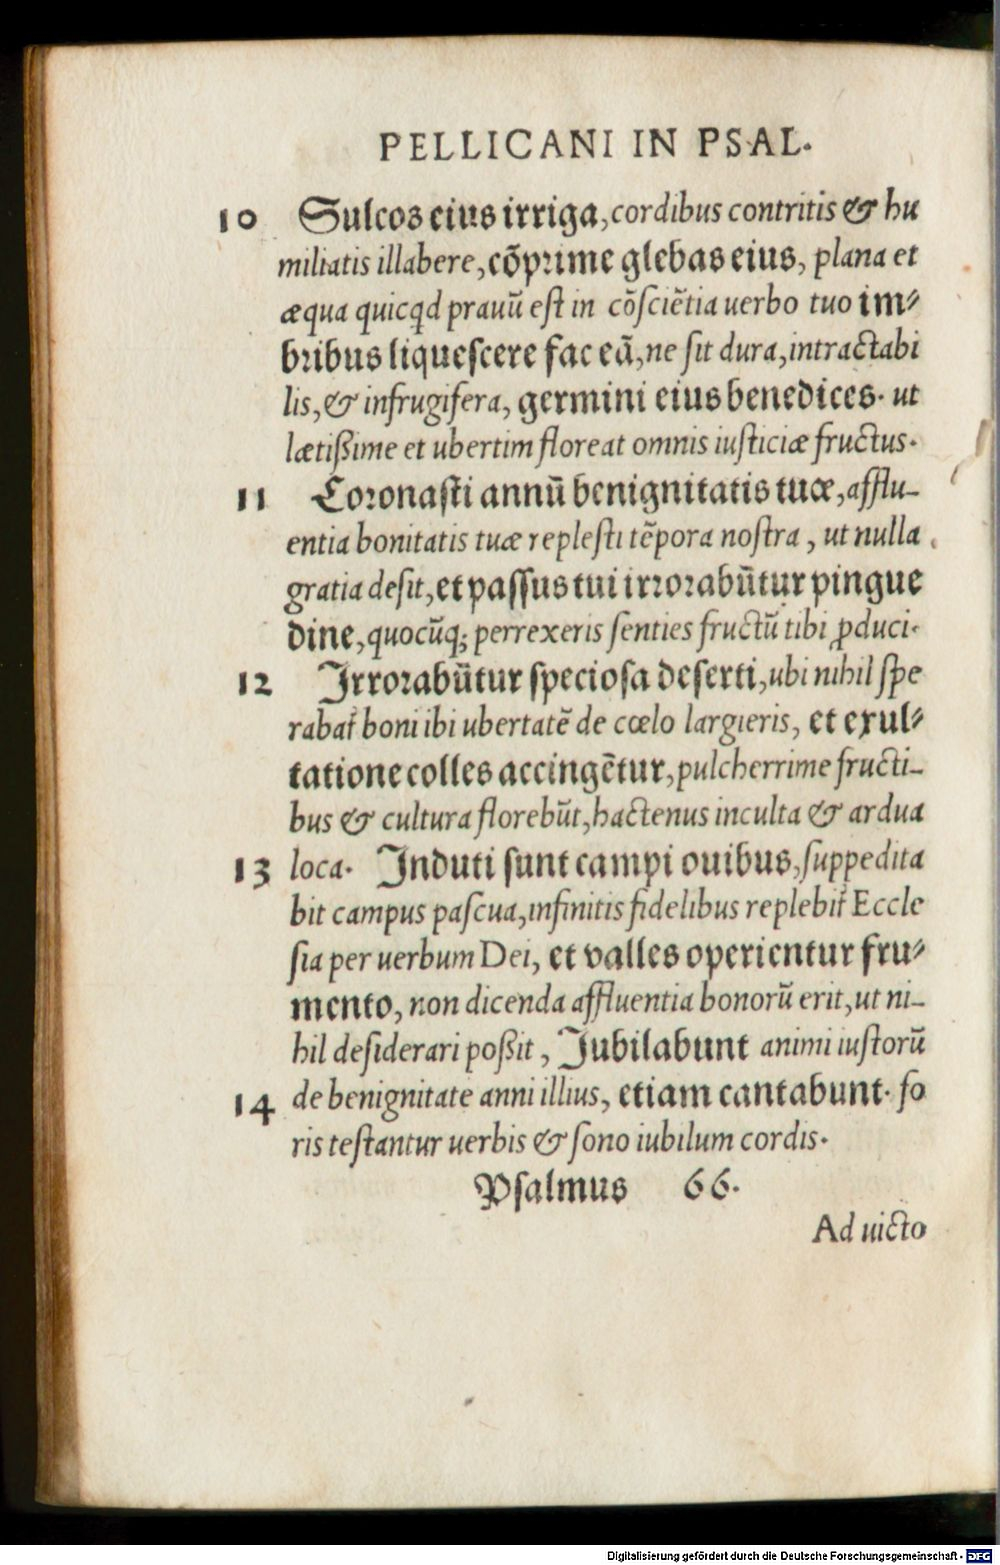 PELLICANI IN PSAL.
10 Sulcos eius irriga, cordibus contritis & hu
miliatis illabere, cōprime glebas eius, plana et
æqua quicqd prauū est in cōsciētia uerbo tuo im⸗
bribus liquescere fac eā, ne sit dura, intractabi
lis, & infrugifera, germini eius benedices. ut
lætißime et ubertim floreat omnis iusticiæ fructus.
11 Coronasti annū benignitatis tuæ, afflu-
entia bonitatis tuæ replesti tēpora nostra, ut nulla
gratia desit, et passus tui irrorabūtur pingue
dine, quocūq; perrexeris senties fructū tibi ꝓduci.
12 Irrorabūtur speciosa deserti, ubi nihil spe
rabat̄ boni ibi ubertatē de cœlo largieris, et exul⸗
tatione colles accingētur, pulcherrime fructi-
bus & cultura florebūt, hactenus inculta & ardua
13 loca. Induti sunt campi ouibus, suppedita
bit campus pascua, infinitis fidelibus replebit̄ Eccle
sia per uerbum Dei, et valles operientur fru⸗
mento, non dicenda affluentia bonorū erit, ut ni-
hil desiderari poßit, Jubilabunt animi iustorū
14 de benignitate anni illius, etiam cantabunt. fo
ris testantur uerbis & sono iubilum cordis.
Psalmus 66.
Ad uicto
Digitalisierung gefördert durch die Deutsche Forschungsgemeinschaft - DFG